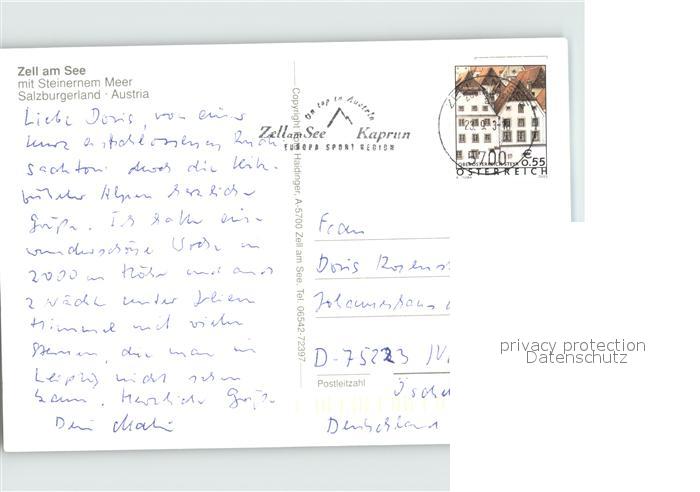 Zell am See
mit Steinernem Meer
Salzburgerland · Austria
Liebe Doris, von einer
kurz entschlossenen Ruck-
sacktour durch die Kitz-
büheler Alpen herzliche
Grüße. Ich hatte eine
wunderschöne Woche in
2000 m Höhe und auch
2 Nächte unter freiem
Himmel mit vielen
Sternen, die man in
Leipzig nicht sehen
kann. Herzliche Grüße
Dein
Copyright Haidinger, A-5700 Zell am See, Tel. 06542-72397
On top in Austria
Zell am See Kaprun
EUROPA SPORT REGION
5700
€ 0.55
ÖSTERREICH
Frau
Doris
Johanneshaus
D-75223
Postleitzahl
Ösche
Deutschland
privacy protection
Datenschutz